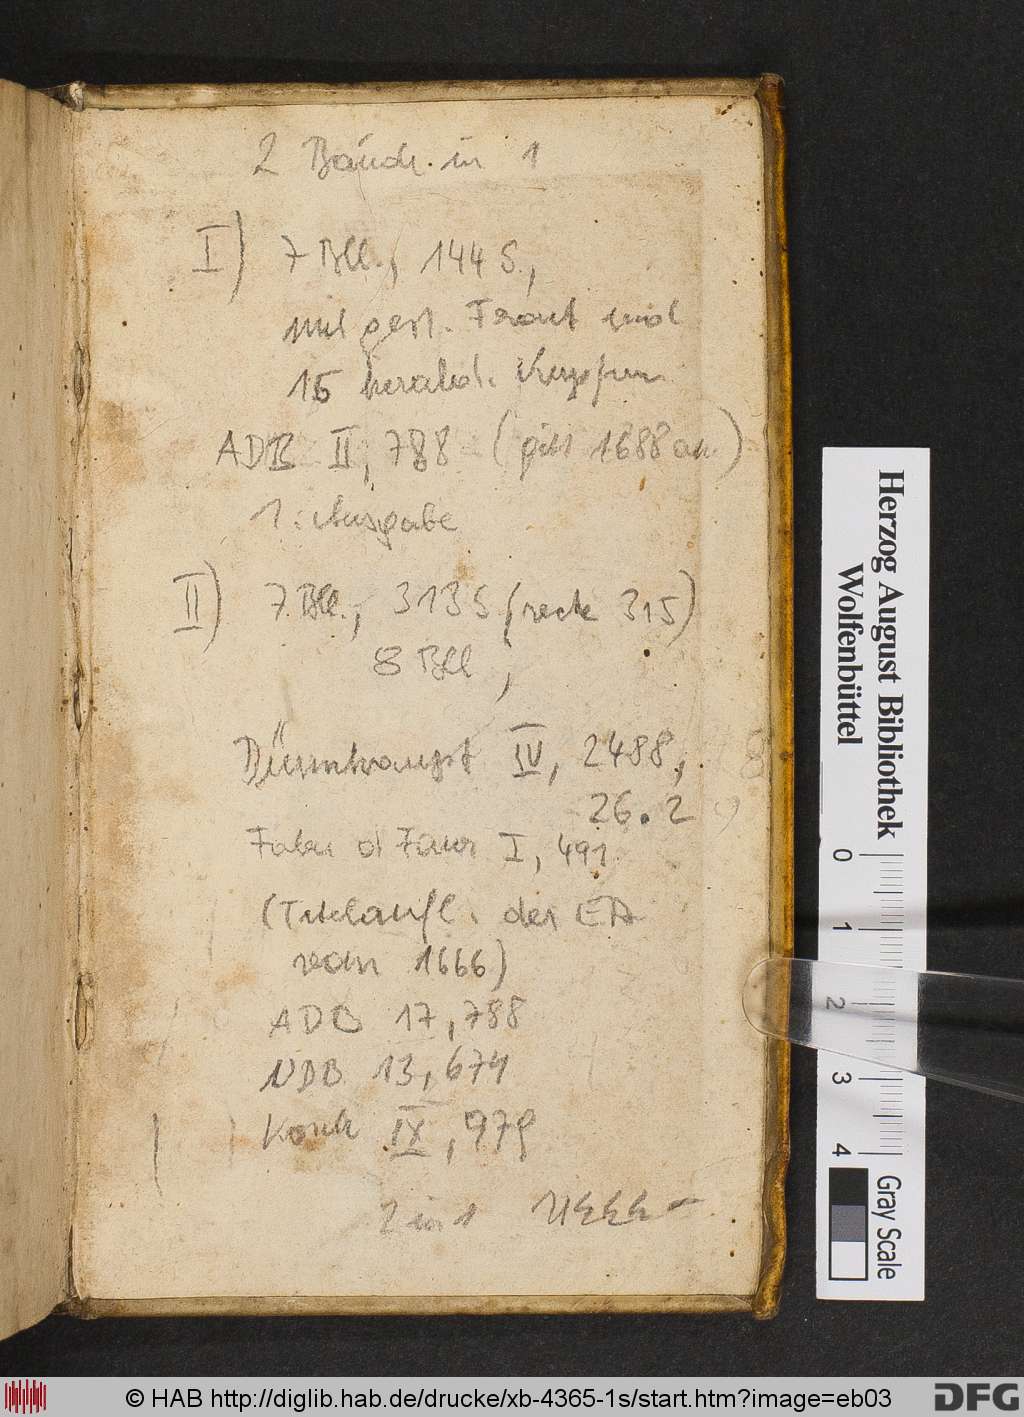 2 Bände in 1
I) 7 Bll., 144 S.,
mit gest. Front und
15 herald. Kupfern
ADB II, 788 (gibt 1688 an)
1. Ausgabe
II) 7 Bll., 313 S (recte 315)
8 Bll,
Dünnhaupt IV, 2488,
26.2
Faber d Faur I, 491
(Titelaufl. der EA
von 1666)
ADB 17, 788
NDB 13, 674
Kosch IX, 979
2 in 1
Herzog August Bibliothek
Wolfenbüttel
0 1 2 3 4
Gray Scale
© HAB http://diglib.hab.de/drucke/xb-4365-1s/start.htm?image=eb03
DFG